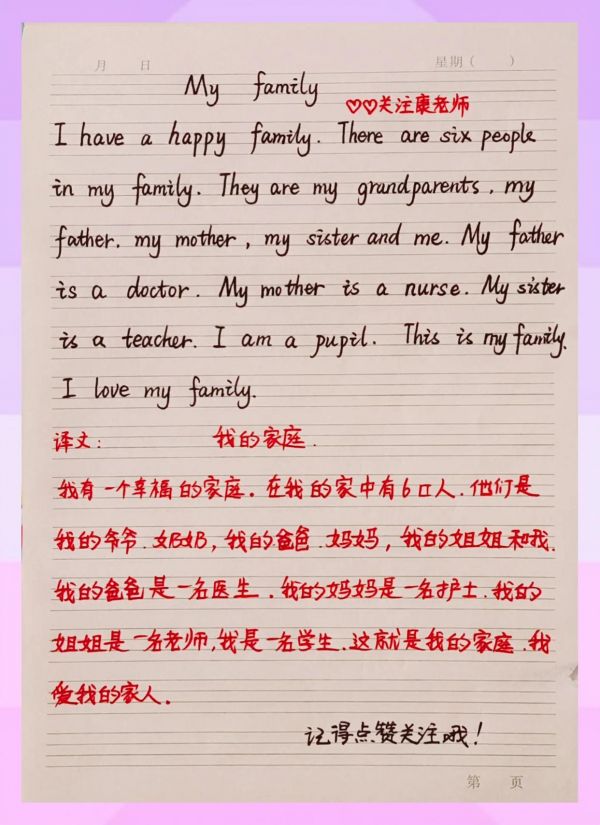 月 日 星期( )
My family
♡♡关注康老师
I have a happy family. There are six people
in my family. They are my grandparents, my
father, my mother, my sister and me. My father
is a doctor. My mother is a nurse. My sister
is a teacher. I am a pupil. This is my family.
I love my family.
译文: 我的家庭.
我有一个幸福的家庭. 在我的家中有6口人. 他们是
我的爷爷. 奶奶, 我的爸爸. 妈妈, 我的姐姐和我.
我的爸爸是一名医生. 我的妈妈是一名护士. 我的
姐姐是一名老师, 我是一名学生. 这就是我的家庭. 我
爱我的家人.
记得点赞关注哦!
第 页